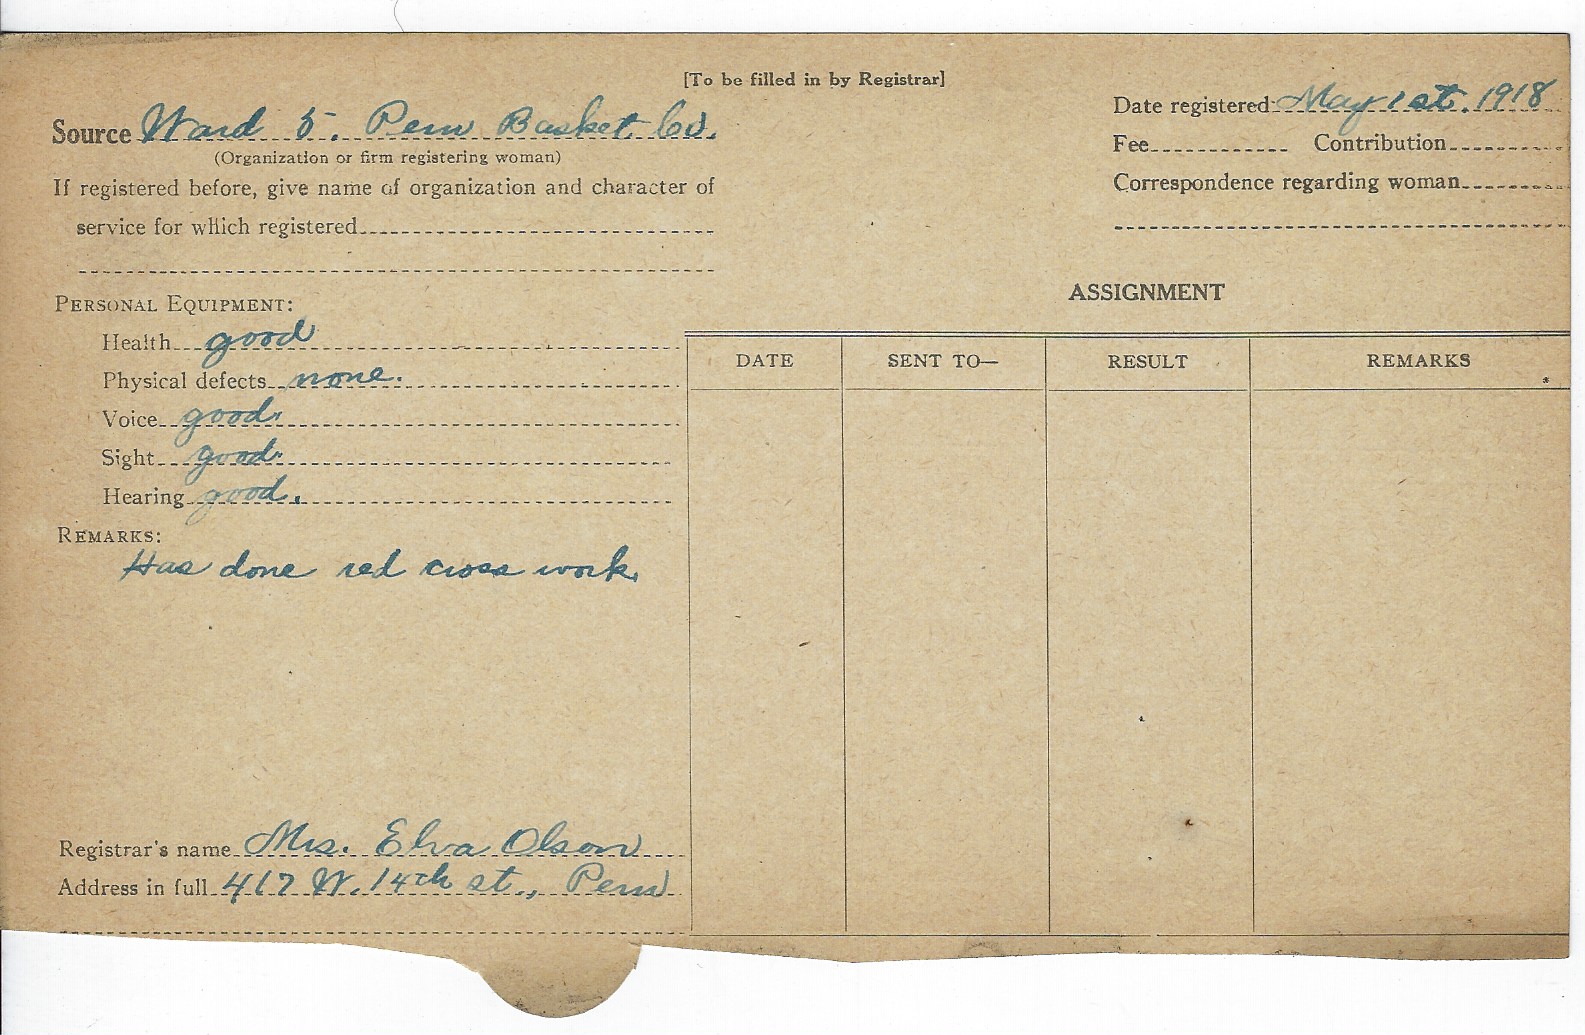 [To be filled in by Registrar]
Source Ward 5. Peru Basket Co.
(Organization or firm registering woman)
If registered before, give name of organization and character of
service for which registered
Date registered May 1st. 1918
Fee Contribution
Correspondence regarding woman
PERSONAL EQUIPMENT:
Health good
Physical defects none.
Voice good.
Sight good.
Hearing good.
REMARKS:
Has done red cross work.
Registrar's name Mrs. Elva Olson
Address in full 417 W. 14th st., Peru
ASSIGNMENT
DATE SENT TO— RESULT REMARKS